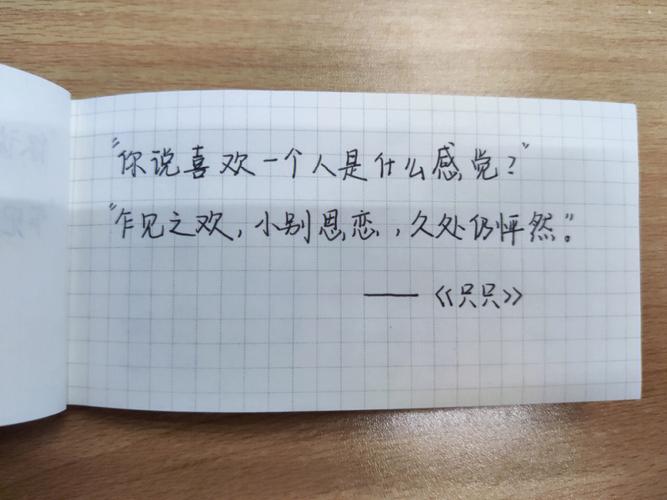 "你说喜欢一个人是什么感觉？"
"乍见之欢，小别思恋，久处仍怦然"。
——《只只》